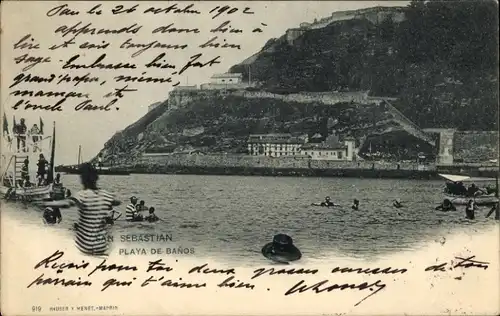 Pau le 26 octobre 1902
apprends donc bien à
lire et sois toujours bien
sage. Embrasse bien fort
grand'papa, mémé
maman et
l'oncle Paul.
SAN SEBASTIAN
PLAYA DE BAÑOS
Reçois pour toi deux grosses caresses de ton
parrain qui t'aime bien.
919 HAUSER Y MENET.-MADRID